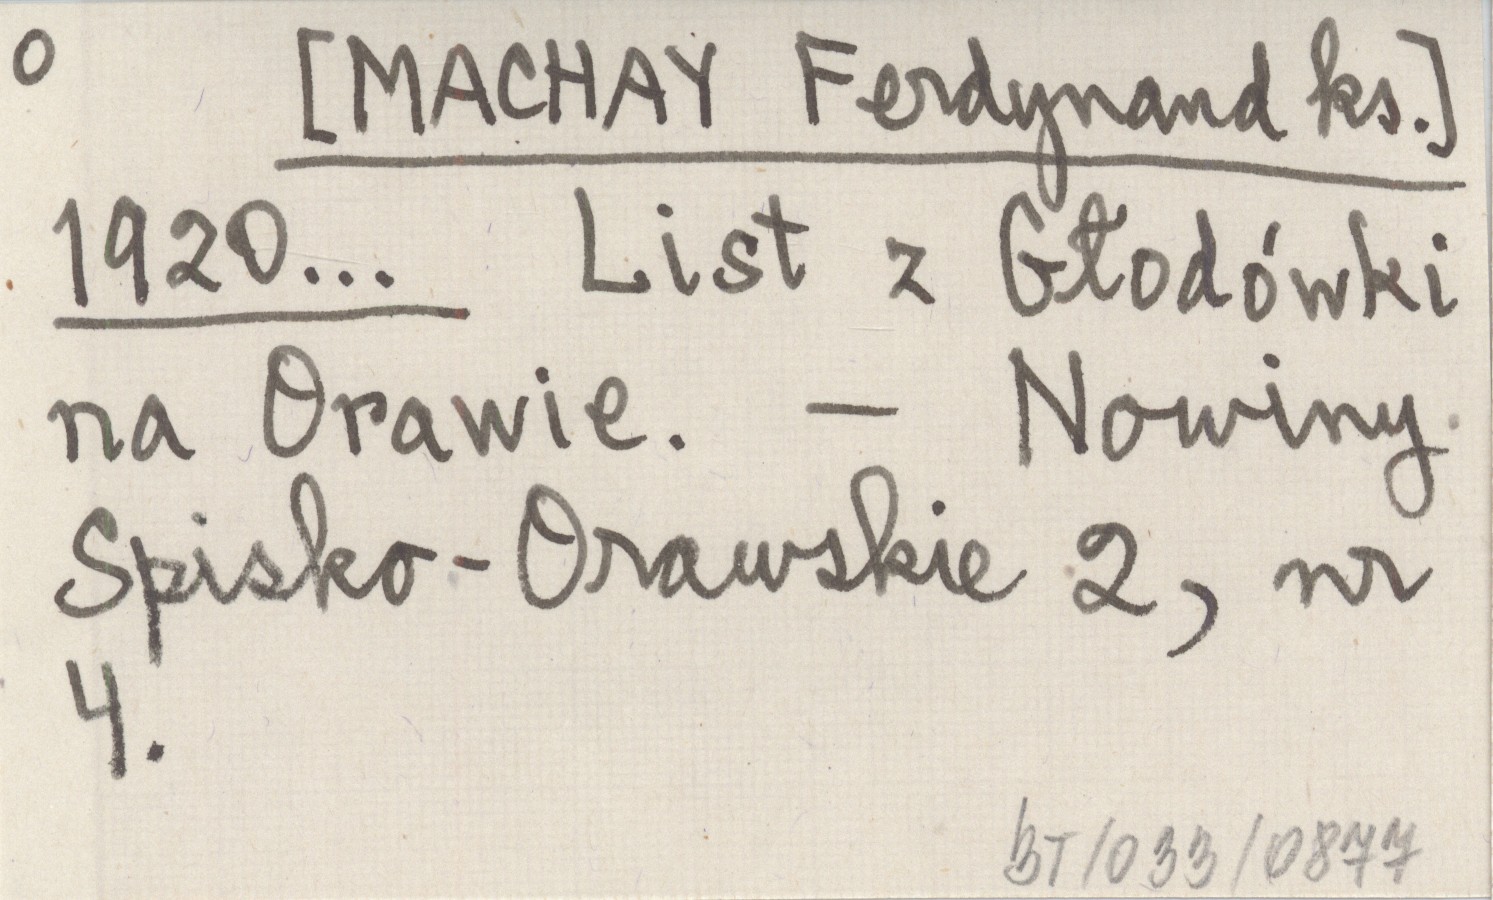 O [MACHAY Ferdynand ks.]
1920... List z Głodówki
na Orawie. — Nowiny
Spisko-Orawskie 2, nr
4.
BT/033/0877